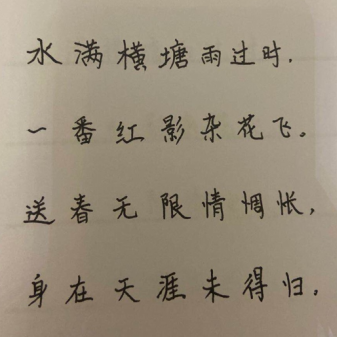 水满横塘雨过时，
一番红影杂花飞。
送春无限情惆怅，
身在天涯未得归。